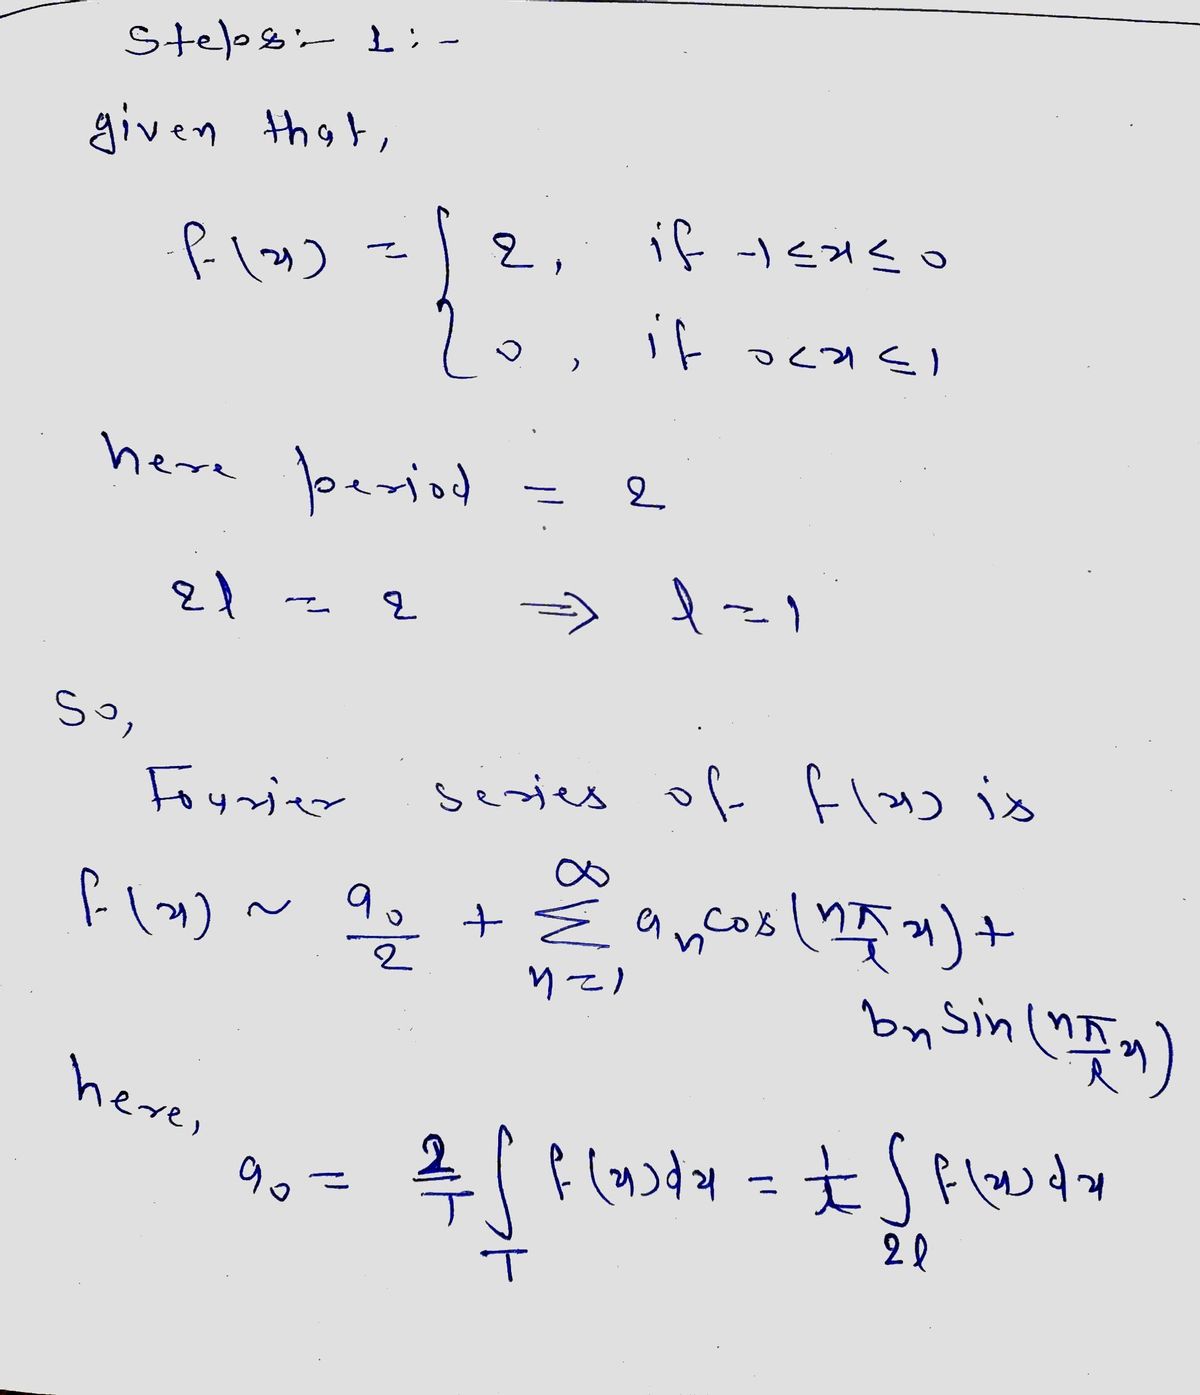 Steps:- 1:-
given that,
f(x) = { 2, if -1 ≤ x ≤ 0
0, if 0 < x ≤ 1
here period = 2
2l = 2 ⇒ l = 1
So,
Fourier series of f(x) is
f(x) ~ a₀/2 + ∞∑n=1 aₙ cos(nπ/l x) +
bₙ sin(nπ/l x)
here,
a₀ = 2/T ∫T f(x)dx = 1/l ∫2l f(x)dx